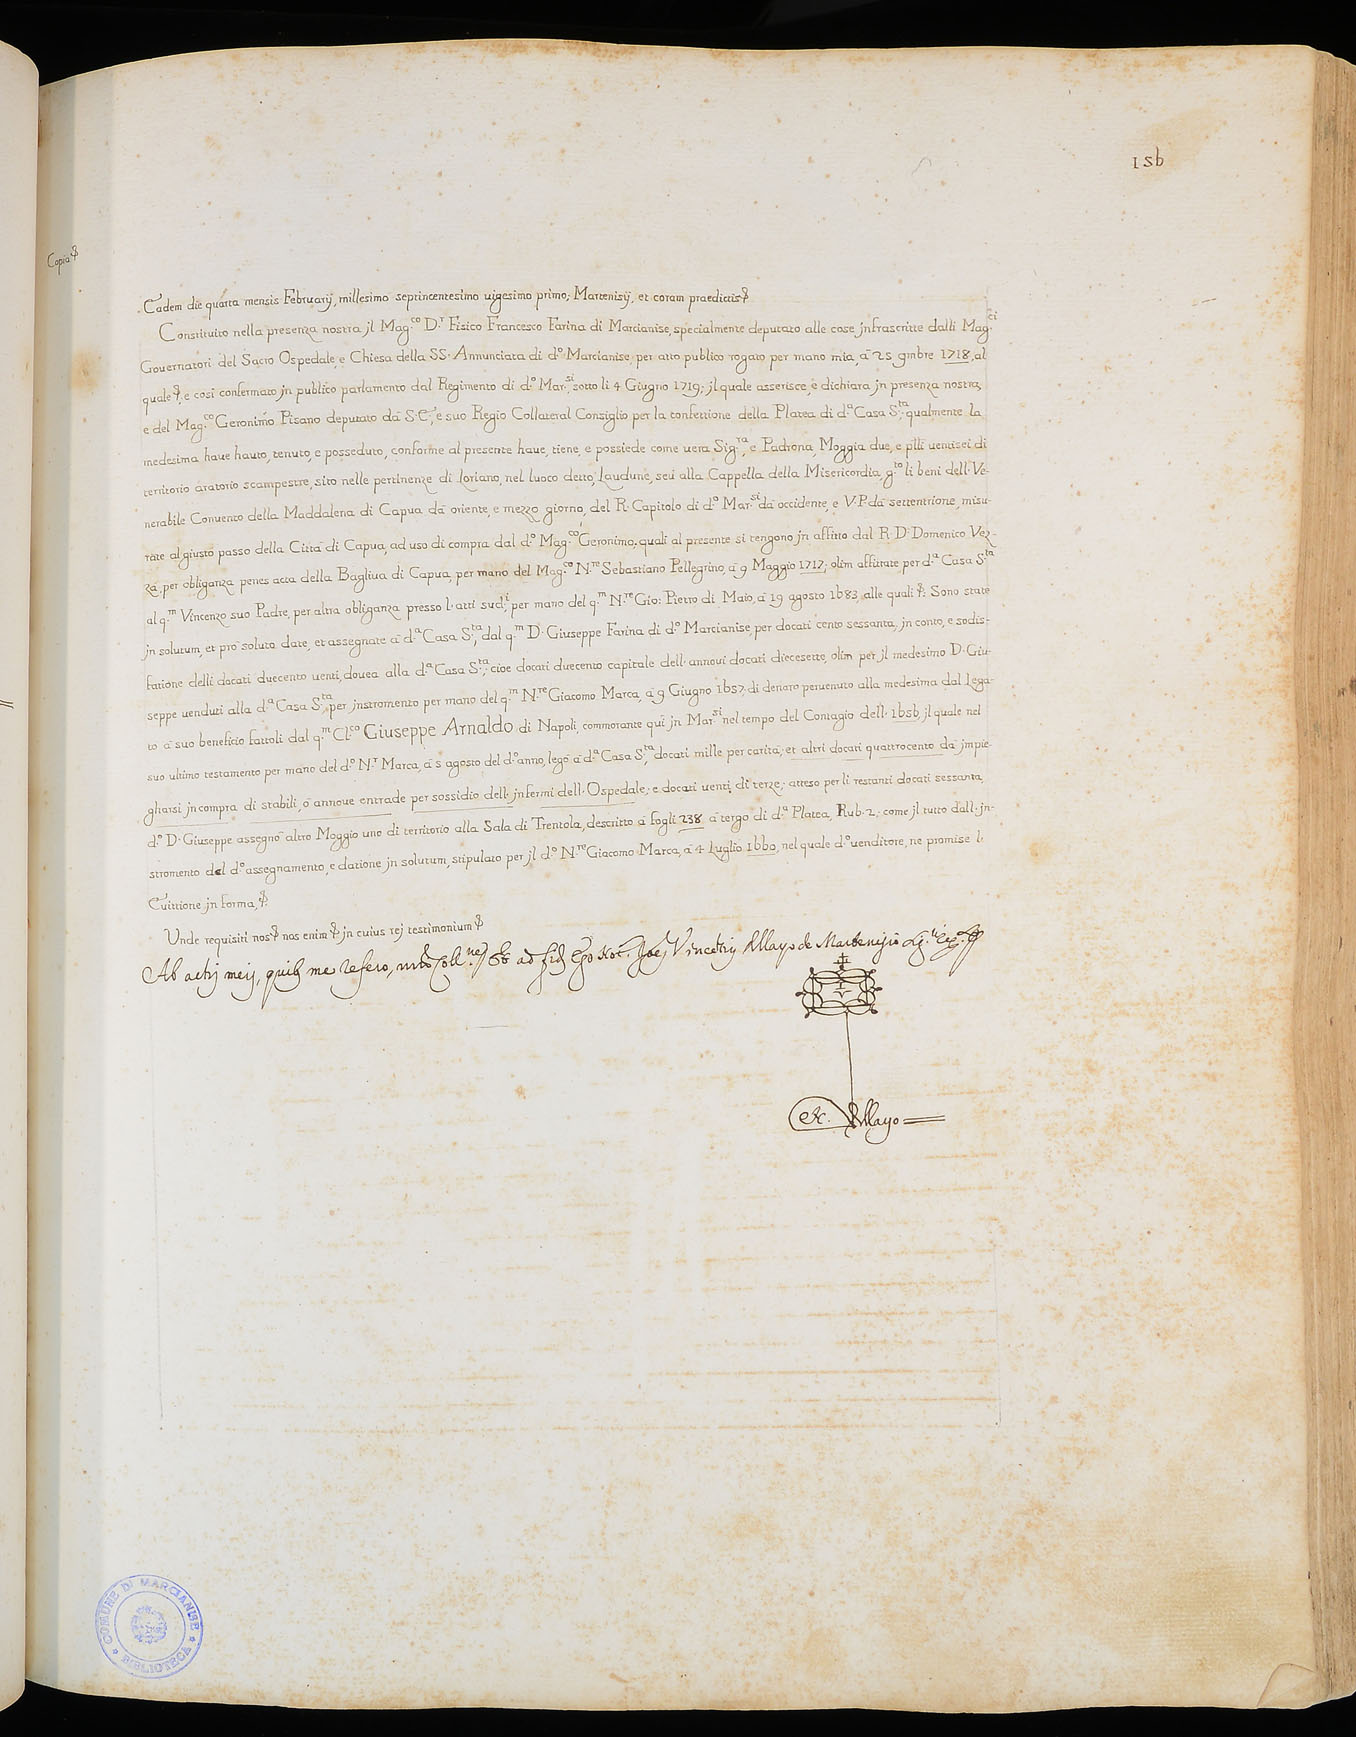 156
Copia
Eadem die quarta mensis Februarij, millesimo septincentesimo uigesimo primo; Martenisij, et coram praedictis
Constituito nella presenza nostra jl Mag.co D.r Fisico Francesco Farina di Marcianise, specialmente deputato alle cose jnfrascritte dalli Mag.ci
Gouernatori del Sacro Ospedale, e Chiesa della SS. Annunciata di d.o Marcianise, per atto publico rogato per mano mia, à 25 9mbre 1718, al
quale, e così confermato jn publico parlamento dal Regimento di d.o Mar.si, sotto li 4 Giugno 1719; jl quale asserisce, e dichiara jn presenza nostra,
e del Mag.co Geronimo Pisano deputato dà S.E., e suo Regio Collateral Consiglio per la confettione della Platea di d.a Casa S.ta, qualmente la
medesima haue hauto, tenuto, e posseduto, conforme al presente haue, tiene, e possiede come uera Sig.ra, e Padrona, Moggia due, e p̃lli uentisei di
territorio aratorio scampestre, sito nelle pertinenze di Loriano, nel luoco detto, Laudune, seù alla Cappella della Misericordia, g.to li beni dell. Ve-
nerabile Conuento della Maddalena di Capua dà oriente, e mezzo giorno, del R. Capitolo di d.o Mar.si dà occidente, e V.P. dà settentrione, misu-
rate al giusto passo della Città di Capua, ad uso di compra dal d.o Mag.co Geronimo; quali al presente si tengono jn affitto dal R. D. Domenico Vez-
za, per obliganza penes acta della Bagliua di Capua, per mano del Mag.co N.re Sebastiano Pellegrino, à 9 Maggio 1717; olim affittate per d.a Casa S.ta
al q.m Vincenzo suo Padre, per altra obliganza presso l. atti sud.i, per mano del q.m N.re Gio: Pietro di Maio, à 19 agosto 1683, alle quali. Sono state
jn solutum, et prò soluto date, et assegnate à d.a Casa S.ta, dal q.m D. Giuseppe Farina di d.o Marcianise, per docati cento sessanta, jn conto, e sodis-
fatione delli docati duecento uenti, douea alla d.a Casa S.ta, cioe docati duecento capitale dell. annoui docati diecesette, olim per jl medesimo D. Giu-
seppe uenduti alla d.a Casa S.ta, per jnstromento per mano del q.m N.re Giacomo Marca, à 9 Giugno 1657, di denaro peruenuto alla medesima dal Lega-
to à suo beneficio fattoli dal q.m Cl.co Giuseppe Arnaldo di Napoli, commorante quì jn Mar.si nel tempo del Contagio dell. 1656, jl quale nel
suo ultimo testamento per mano del d.o N.r Marca, à 5 agosto del d.o anno, legò à d.a Casa S.ta, docati mille per carità; et altri docati quattrocento dà jmpie-
gharsi jn compra di stabili, ò annoue entrade per sossidio dell. jnfermi dell. Ospedale; e docati uenti di terze; atteso per li restanti docati sessanta,
d.o D. Giuseppe assegnò altro Moggio uno di territorio alla Sala di Trentola, descritto à fogli 238 à tergo di d.a Platea, Rub. 2; come jl tutto dall. jn-
stromento del d.o assegnamento, e datione jn solutum, stipulato per jl d.o N.re Giacomo Marca, à 4 Luglio 1660, nel quale d.o uenditore, ne promise l.
Euittione jn forma,
Unde requisiti nos nos enim jn cuius rej testimonium
Ab actis meis, quibs me refero, ad fidem Ego Not. Vincentius Mayo de Martenisio
N. Mayo
COMUNE DI MARCIANISE
* BIBLIOTECA *